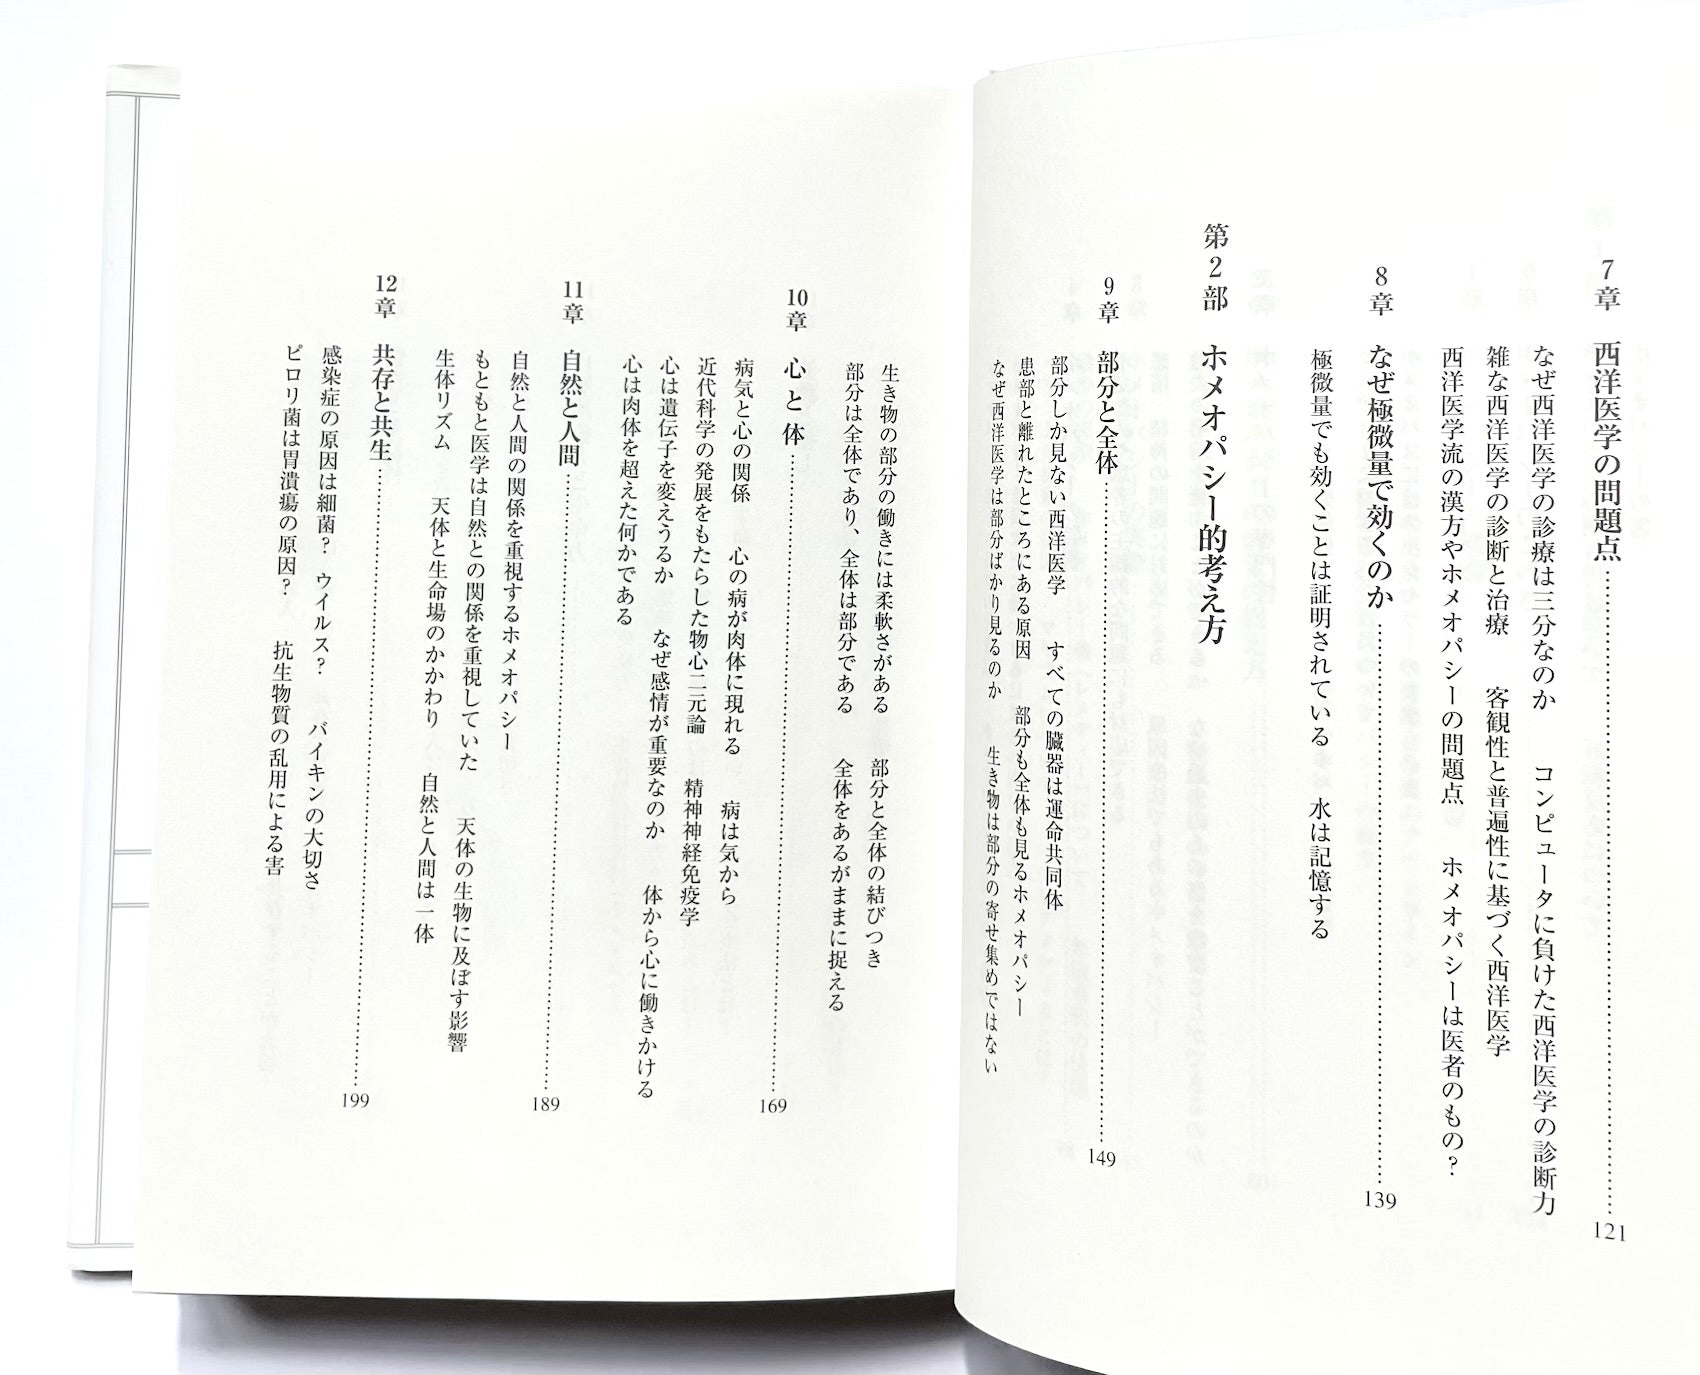 7章 西洋医学の問題点……………………121
なぜ西洋医学の診療は三分なのか コンピュータに負けた西洋医学の診断力
雑な西洋医学の診断と治療 客観性と普遍性に基づく西洋医学
西洋医学流の漢方やホメオパシーの問題点 ホメオパシーは医者のもの？
8章 なぜ極微量で効くのか……………………139
極微量でも効くことは証明されている 水は記憶する
第2部 ホメオパシー的考え方
9章 部分と全体……………………149
部分しか見ない西洋医学 すべての臓器は運命共同体
患部と離れたところにある原因 部分も全体も見るホメオパシー
なぜ西洋医学は部分ばかり見るのか 生き物は部分の寄せ集めではない
生き物の部分の働きには柔軟さがある 部分と全体の結びつき
部分は全体であり、全体は部分である 全体をあるがままに捉える
10章 心と体……………………169
病気と心の関係 心の病が肉体に現れる 病は気から
近代科学の発展をもたらした物心二元論 精神神経免疫学
心は遺伝子を変えうるか なぜ感情が重要なのか 体から心に働きかける
心は肉体を超えた何かである
11章 自然と人間……………………189
自然と人間の関係を重視するホメオパシー
もともと医学は自然との関係を重視していた 天体の生物に及ぼす影響
生体リズム 天体と生命場のかかわり 自然と人間は一体
12章 共存と共生……………………199
感染症の原因は細菌？ ウイルス？ バイキンの大切さ
ピロリ菌は胃潰瘍の原因？ 抗生物質の乱用による害